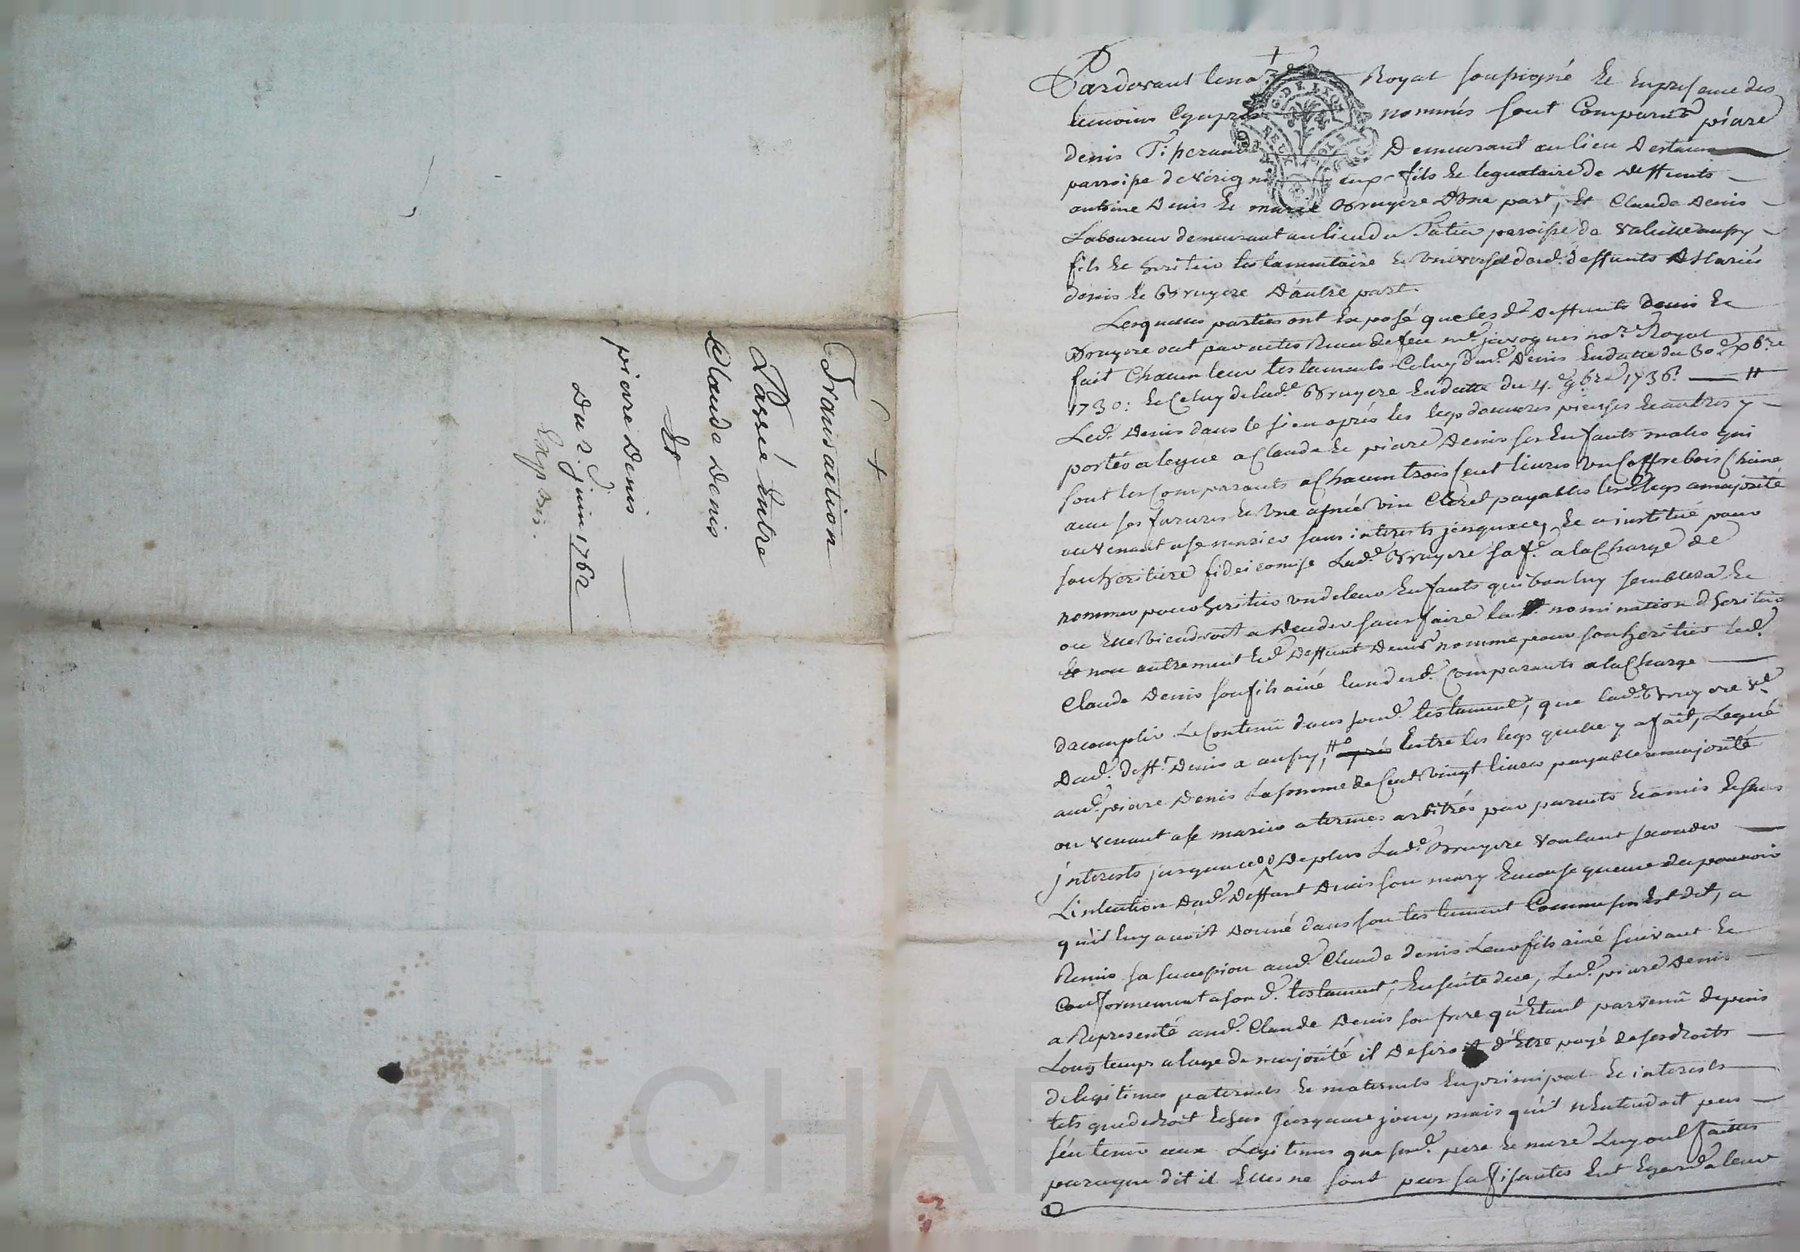 Transaction
Passé entre
Claude Denis
Et
piere Denis
Du 2. juin 1762
Exp
Pardevant Royal soussigné Et En presence des
temoins Cyapres nommés sont Comparus piere
denis Demeurant au lieu
parroisse de fils Et legataire de Deffunts
antoine Denis Et marie Bruyere D'Une part, Et Claude Denis
Laboureur demeurant au lieu du parroisse de
fils Et heritier testamentaire Et Universel desd. deffunts Mariés
denis Et Bruyere D'autre part.
Lesquelles parties ont Exposé que lesd. Deffunts Denis Et
Bruyere ont par actes Recu de feu me. javogues nore. Royal
fait Chacun leur testaments Celuy dud. Denis En datte du 30e. xbre
1730: Et Celuy de lad. Bruyere En datte du 4. 9bre 1736.
Led. Denis dans le sien aprés les legs d'oeuvres pieuses Et autres y
portés a legué a Claude Et piere Denis ses Enfants males qui
sont les Comparants a Chacun trois Cent livres Un Coffre bois Chaine
avec ses farures Et Une asnée vin Cleret payables lesd. legs a majorité
ou venant a se marier sans interests jusqu'a ce, Et a institué pour
son heritiere fideicomise Lad. Bruyere sa fe. a la Charge de
nommer pour heritier Un de leur Enfants qui bon luy semblera Et
ou Elle viendroit a Deceder sans faire lad. nomination d'heritier
Et non autrement led. Deffunt Denis nomme pour son heritier led.
Claude Denis son fils ainé l'un desd. Comparants a la Charge
d'acomplir Le Contenu dans sond. testament, que lad. Bruyere ve.
Dud. defft. Denis a aussy, Entre les legs qu'elle y a fait, Legué
aud. piere Denis La somme de Cent vingt livres payable a majorité
ou venant a se marier a termes arbitrés par parents Et amis Et sans
interests jusqu'a ce, De plus Lad. Bruyere voulant seconder
L'intention Dud. Deffunt Denis son mary En consequence du pouvoir
qu'il luy avoit Donné dans son testament Comme sus Est dit, a
Remis sa sucession aud. Claude denis Leur fils ainé suivant Et
Conformement a sond. testament, Ensuite de ce, Led. piere Denis
a Representé aud. Claude Denis son frere qu'Etant parvenu depuis
Longtemps a l'age de majorité il Desiroit d'Etre payé de ses droits
de legitimes paternels Et maternels En principal Et interests
tels que de droit Echus jusqu'a ce jour, mais qu'il n'Entendoit pas
s'en tenir aux Legitimes que sesd. pere Et mere Luy ont faittes
parceque dit il Elles ne sont pas sufisantes Eut Egard a leur